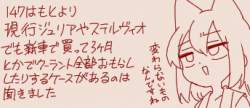 147はもとより
現行ジュリアやステルヴィオ
でも新車で買って3ヶ月
とかでクーラント全部おもらし
したりするケースがあるのは
聞きました
変わらないもの
なんですねぇ